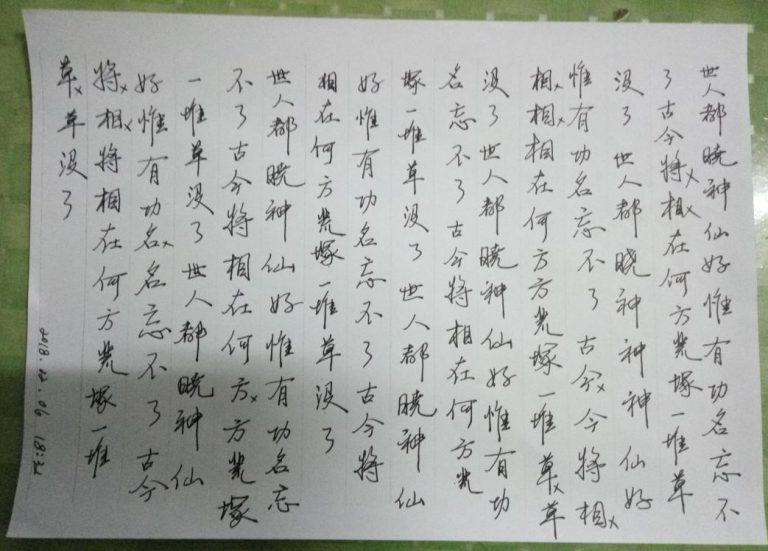 世人都晓神仙好惟有功名忘不
了古今将相在何方荒塚一堆草
没了世人都晓神神神仙好
惟有功名忘不了古今今将相
相相相在何方方荒塚一堆草草
没了世人都晓神仙好惟有功
名忘不了古今将相在何方荒
塚一堆草没了世人都晓神仙
好惟有功名忘不了古今将
相在何方荒塚一堆草没了
世人都晓神仙好惟有功名忘
不了古今将相在何方方荒塚
一堆草没了世人都晓神仙
好惟有功名名忘不了古今
将相将相在何方荒塚一堆
草草没了
2018.12.06 18:32